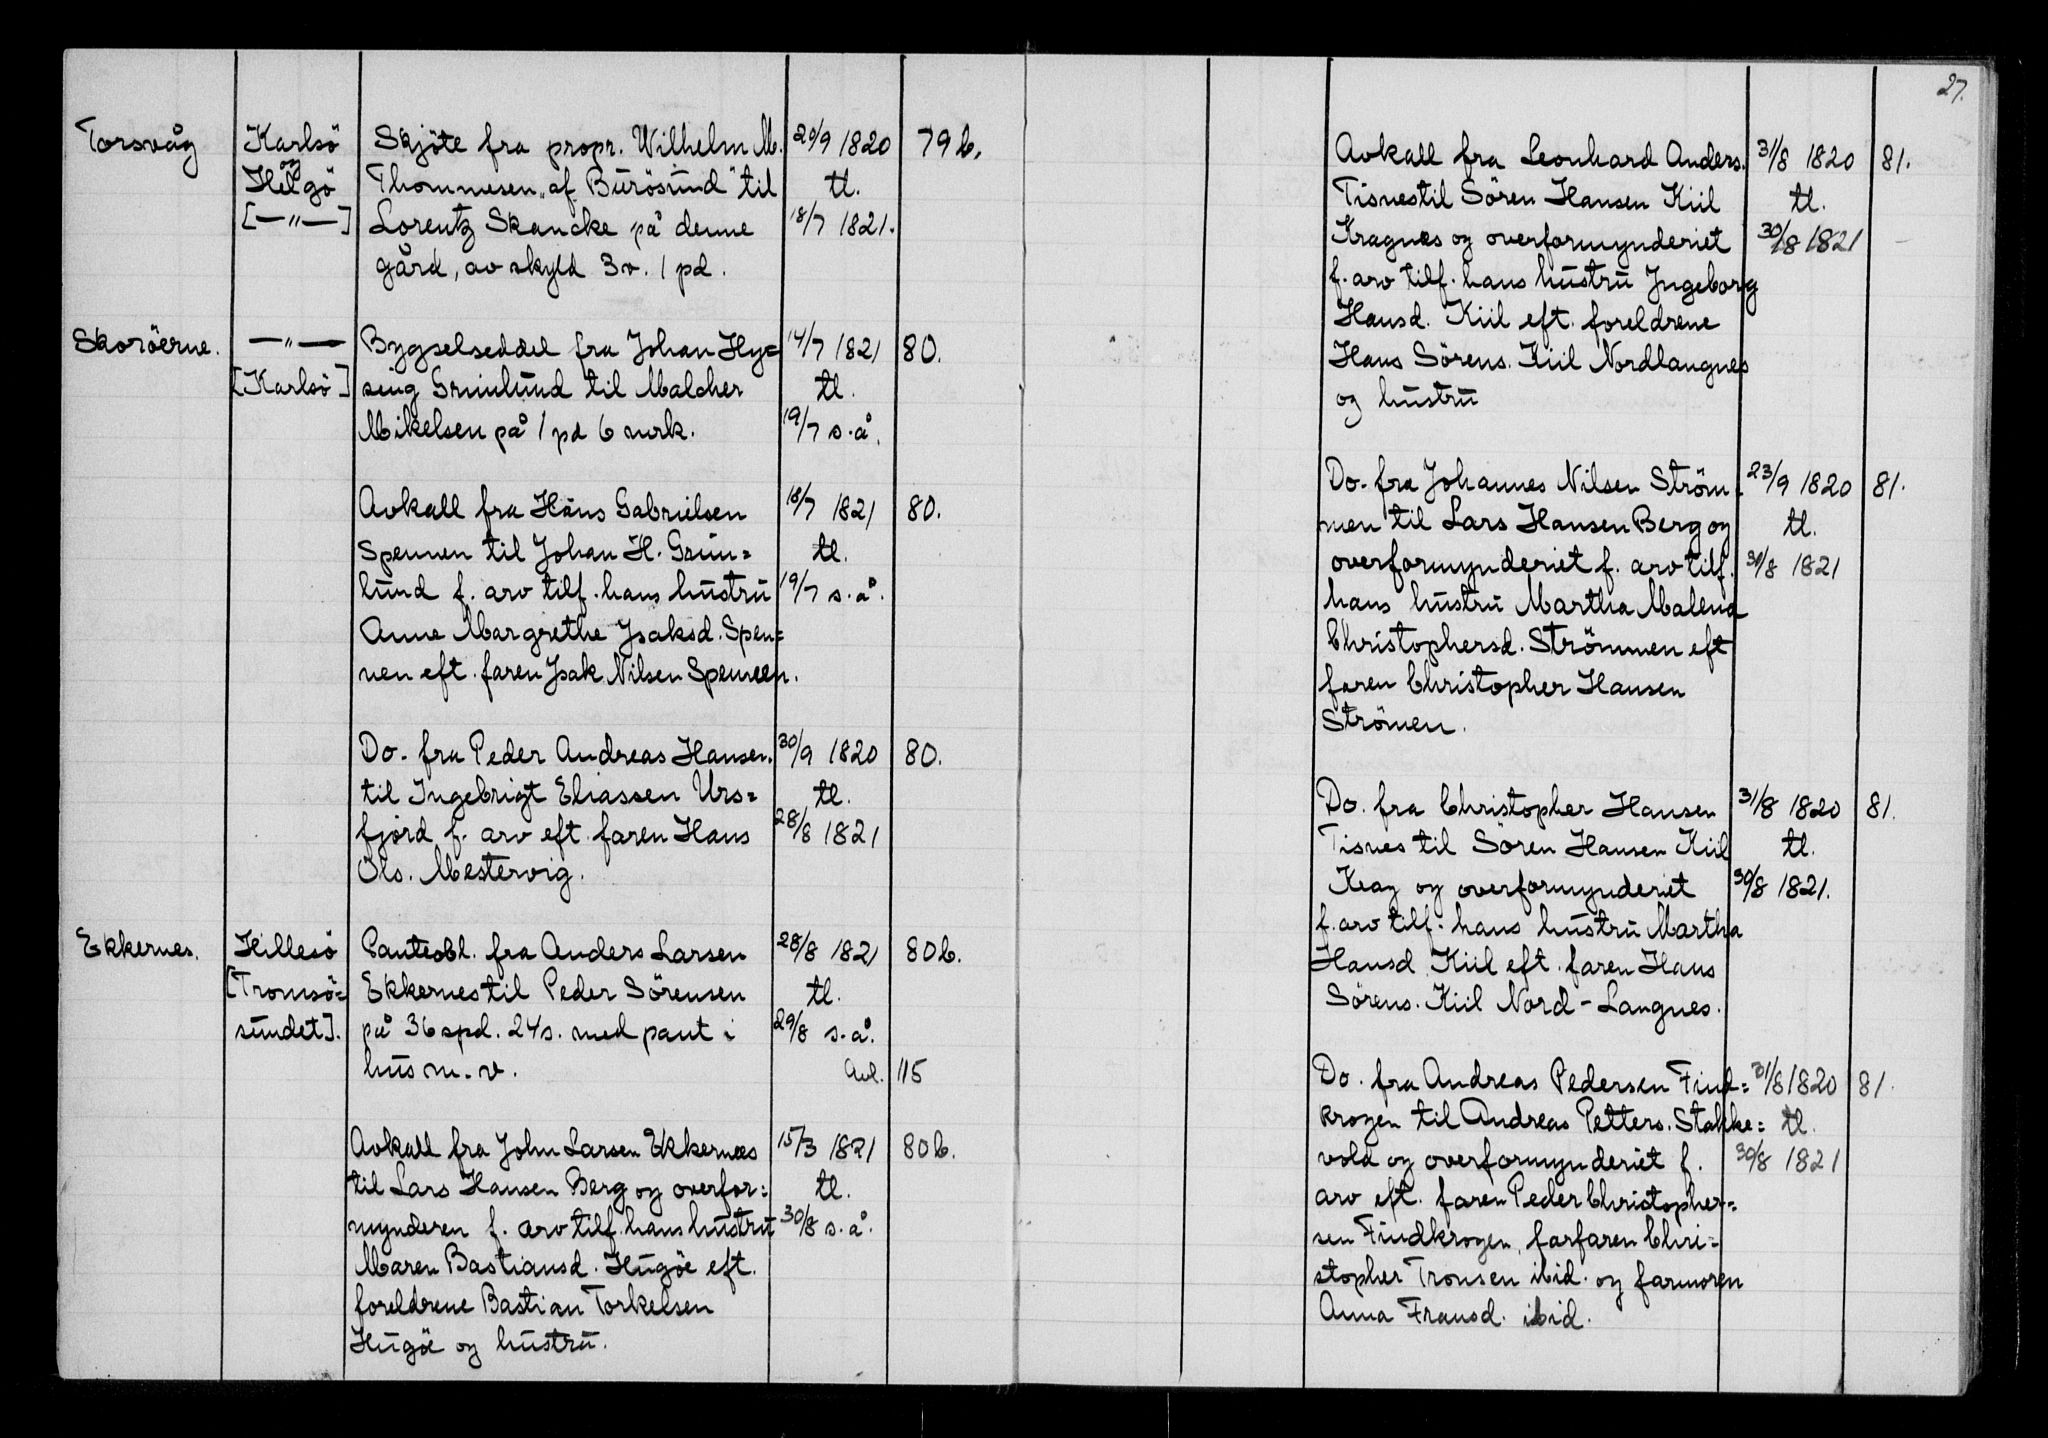 27.
Torsvåg Karlsö Skjöte fra propr. Wilhelm M. 20/9 1820 79b.
og
Helgö Thommesen „af Burösund" til tl.
[—„—] Lorentz Skancke på denne 18/7 1821.
gård, av skyld 3 v. 1 pd.
Skoröerne. —„— Bygselseddel fra Johan Hy= 14/7 1821 80.
[Karlsö] sing Grünlund til Malcher tl.
Mikelsen på 1 pd 6 mrk. 19/7 s.å.
Avkall fra Hans Gabrielsen 18/7 1821 80.
Spennen til Johan H. Grün= tl.
lund f. arv tilf. hans hustru 19/7 s.å.
Anne Margrethe Isaksd. Spen=
nen eft. faren Isak Nilsen Spennen.
Do. fra Peder Andreas Hansen 30/9 1820 80.
til Ingebrigt Eliassen Urs= tl.
fjord f. arv eft. faren Hans 28/8 1821
Ols. Mestervig.
Ekkernes. Hillesö Panteobl. fra Anders Larsen 28/8 1821 80b.
[Tromsö= Ekkernes til Peder Sörensen tl.
sundet]. på 36 spd. 24 s. med pant i 29/8 s.å.
hus m.v. Avl. 115
Avkall fra John Larsen Ekkernes 15/3 1821 80b.
til Lars Hansen Berg og overfor= tl.
mynderen f. arv tilf. hans hustru 30/8 s.å.
Maren Bastiansd. Hugöe eft.
foreldrene Bastian Torkelsen
Hugöe og hustru.
Avkall fra Leonhard Anders. 31/8 1820 81.
Tisnes til Sören Hansen Kiil tl.
Kragnes og overformynderiet 30/8 1821
f. arv tilf. hans hustru Ingeborg
Hansd. Kiil eft. foreldrene
Hans Sörens. Kiil Nordlangnes
og hustru
Do. fra Johannes Nilsen Ström= 23/9 1820 81.
men til Lars Hansen Berg og tl.
overformynderiet f. arv tilf. 30/8 1821
hans hustru Martha Malena
Christophersd. Strömmen eft
faren Christopher Hansen
Strömen.
Do. fra Christopher Hansen 31/8 1820 81.
Tisnes til Sören Hansen Kiil tl.
Krag og overformynderiet 30/8 1821.
f. arv tilf. hans hustru Martha
Hansd. Kiil eft. faren Hans
Sörens. Kiil Nord-Langnes.
Do. fra Andreas Pedersen Find= 31/8 1820 81.
krogen til Andreas Petters. Stakke= tl.
vold og overformynderiet f. 30/8 1821
arv eft. faren Peder Christopher=
sen Findkrogen, farfaren Chri=
stopher Tronsen ibid. og farmoren
Anna Fransd. ibid.